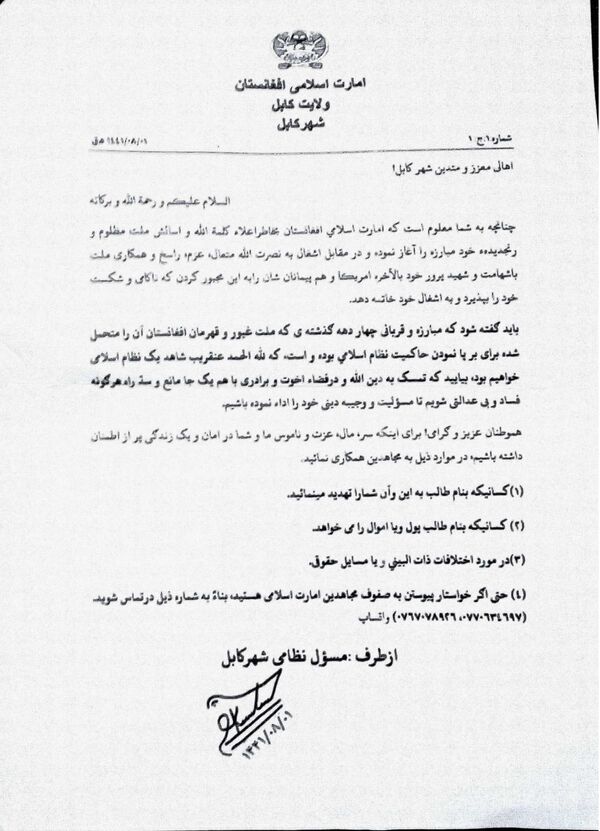 امارت اسلامی افغانستان
ولایت کابل
شهرکابل
شماره ۱.ج ۱
۱۴۴۱/۰۸/۰۱ ه‍ ق
اهالی معزز و متدین شهر کابل!
السلام علیکم و رحمة الله و برکاته
چنانچه به شما معلوم است که امارت اسلامي افغانستان بخاطراعلاء کلمة الله و اسائش ملت مظلوم و
رنجدیده، خود مبارزه را آغاز نموده و در مقابل اشغال به نصرت الله متعال، عزم، راسخ و همکاری ملت
باشهامت و شهید پرور خود بالآخره امریکا و هم پیمانان شان رابه این مجبور کردن که ناکامی و شکست
خود را بپذیرد و به اشغال خود خاتمه دهد.
باید گفته شود که مبارزه و قربانی چهار دهه گذشته ی که ملت غیور و قهرمان افغانستان آن را متحمل
شده برای بر پا نمودن حاکمیت نظام اسلامي بوده و است، که لله الحمد عنقریب شاهد یک نظام اسلامی
خواهیم بود، بیایید که تمسک به دین الله و درفضاء اخوت و برادری با هم یک جا مانع و سد راه هرگونه
فساد و بی عدالتی شویم تا مسؤلیت و وجیبه دینی خود را اداء نموده باشیم.
هموطنان عزیز و گرامی! برای اینکه سر، مال، عزت و ناموس ما و شما در امان و یک زندگی پر از اطمنان
داشته باشیم، در موارد ذیل به مجاهدین همکاری نمائید.
(۱) کسانیکه بنام طالب به این وآن شمارا تهدید مینمائید.
(۲) کسانیکه بنام طالب پول ویا اموال را می خواهد.
(۳) در مورد اختلافات ذات البیني و یا مسایل حقوقی.
(٤) حتی اگر خواستار پیوستن به صفوف مجاهدین امارت اسلامی هستید، بناءً به شماره ذیل درتماس شوید.
(۰۷۷۰۶۳٤۶۹۷، ۰۷۶۷۰۷۸۹۲۶) واتساپ
ازطرف :مسؤل نظامی شهرکابل
۱۴۴۱/۰۸/۰۱